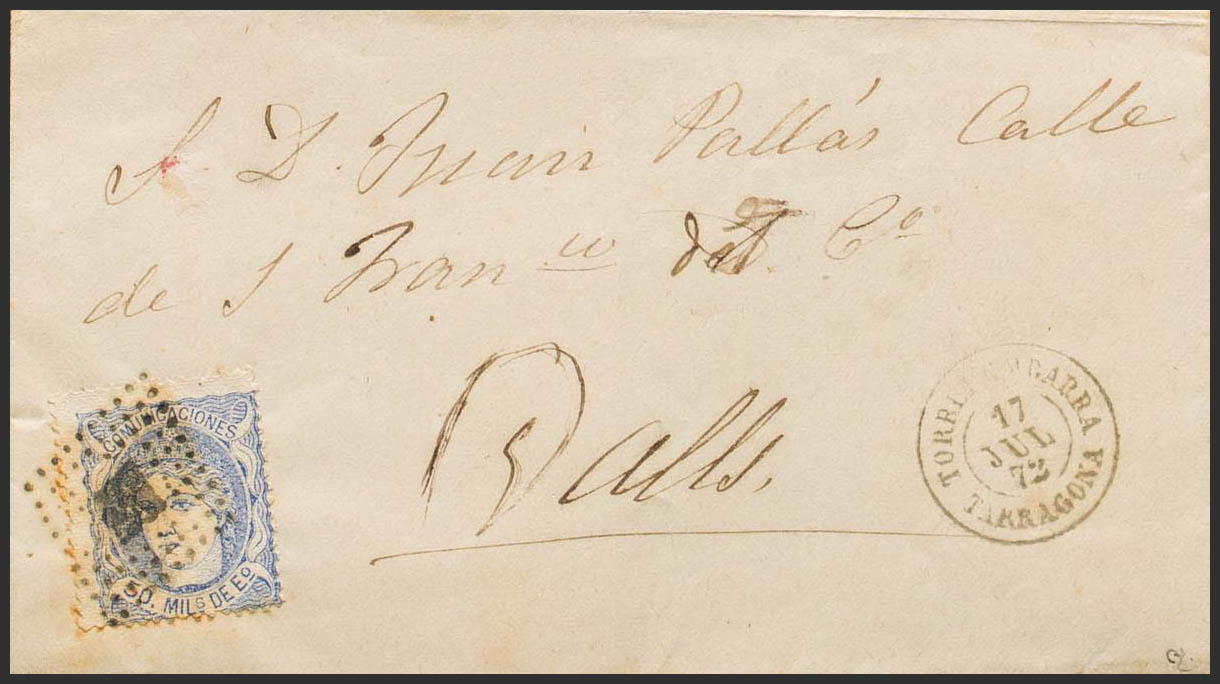 S. D. Juan Pallás Calle
de S Fran co del Co
Valls.
COMUNICACIONES
50. MILS DE Eo
TORREDEMBARRA
17
JUL
72
TARRAGONA